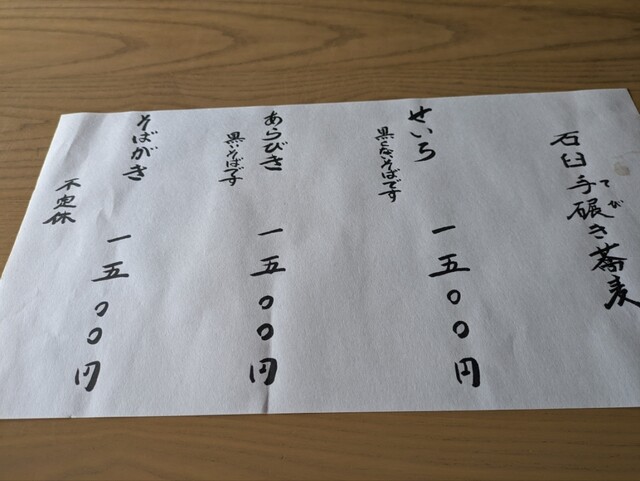 石臼手碾き蕎麦
せいろ
黒くないそばです
一五〇〇円
あらびき
黒いそばです
一五〇〇円
そばがき
一五〇〇円
不定休